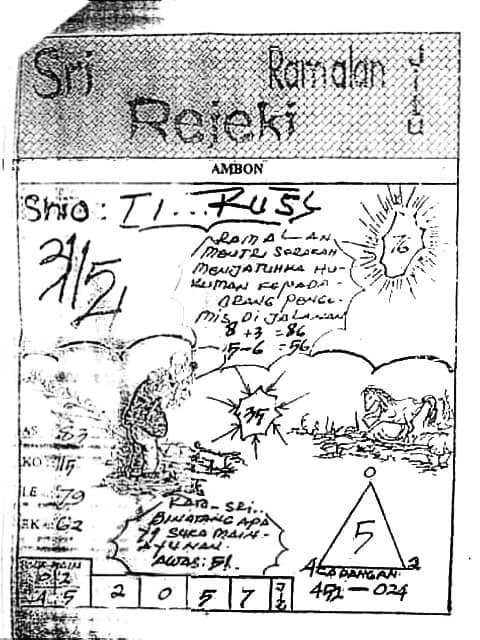 Sri Ramalan Jitu
Rejeki
AMBON
Shio: TI...KUS
RAMALAN
MENTRI SERAKAH
MENJATUHKA HU-
KUMAN KEPADA-
ORANG PENGE-
MIS DI JALANAN
8 + 3 = 86
5 - 6 = 56
76
35
AS : 83
KO : 15
LE : 79
EK : 62
KATA - SRI..
BINATANG APA
YG SUKA MAIN-
AYUNAN.
AWAS: 51.
0
5
4 2
CADANGAN:
452 - 024
MAIN
0 2
4 5
2 0 5 7